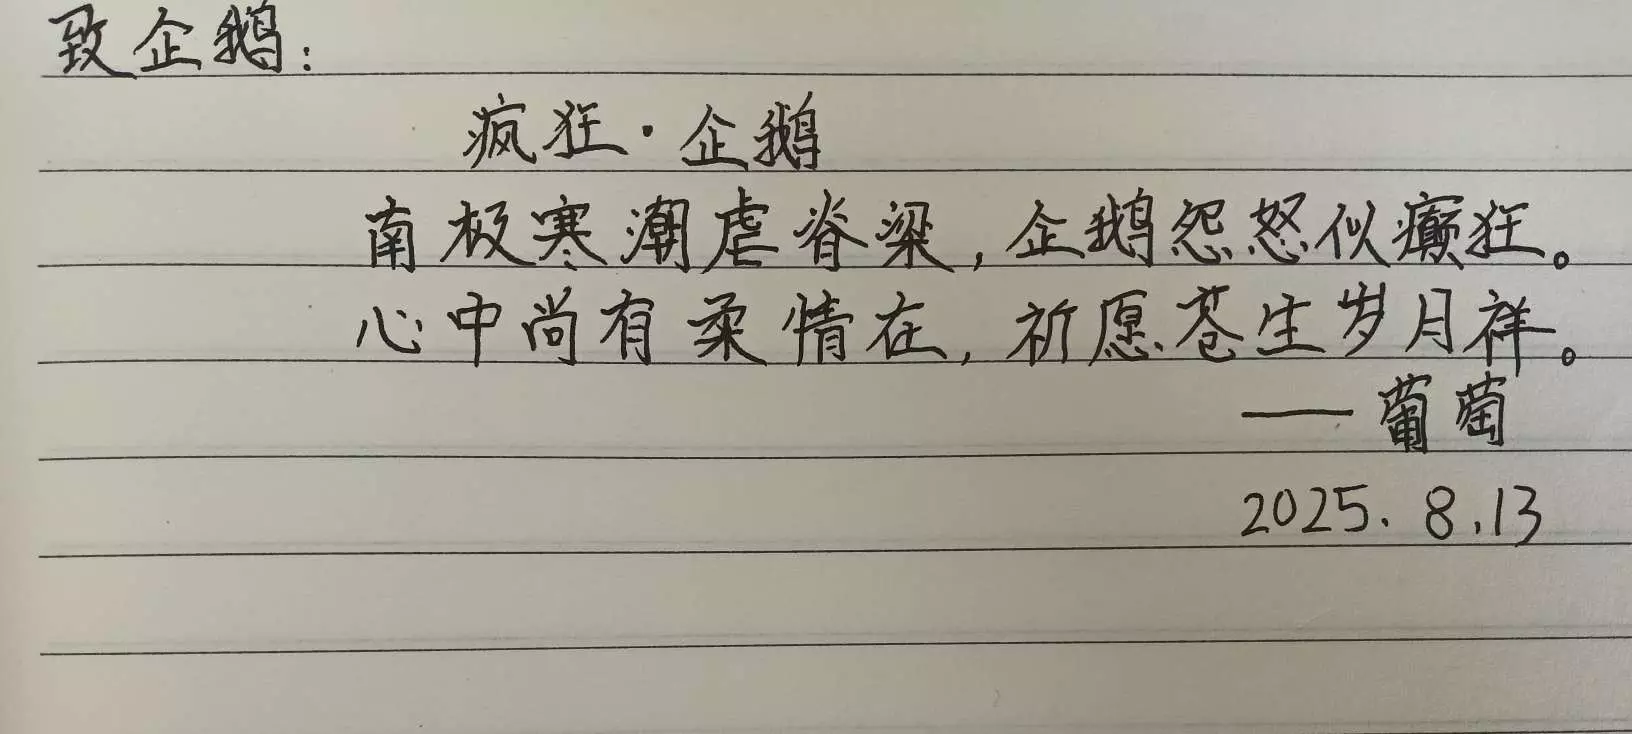 致企鹅:
疯狂·企鹅
南极寒潮虐脊梁,企鹅怨怒似癫狂。
心中尚有柔情在,祈愿苍生岁月祥。
——葡萄
2025.8.13